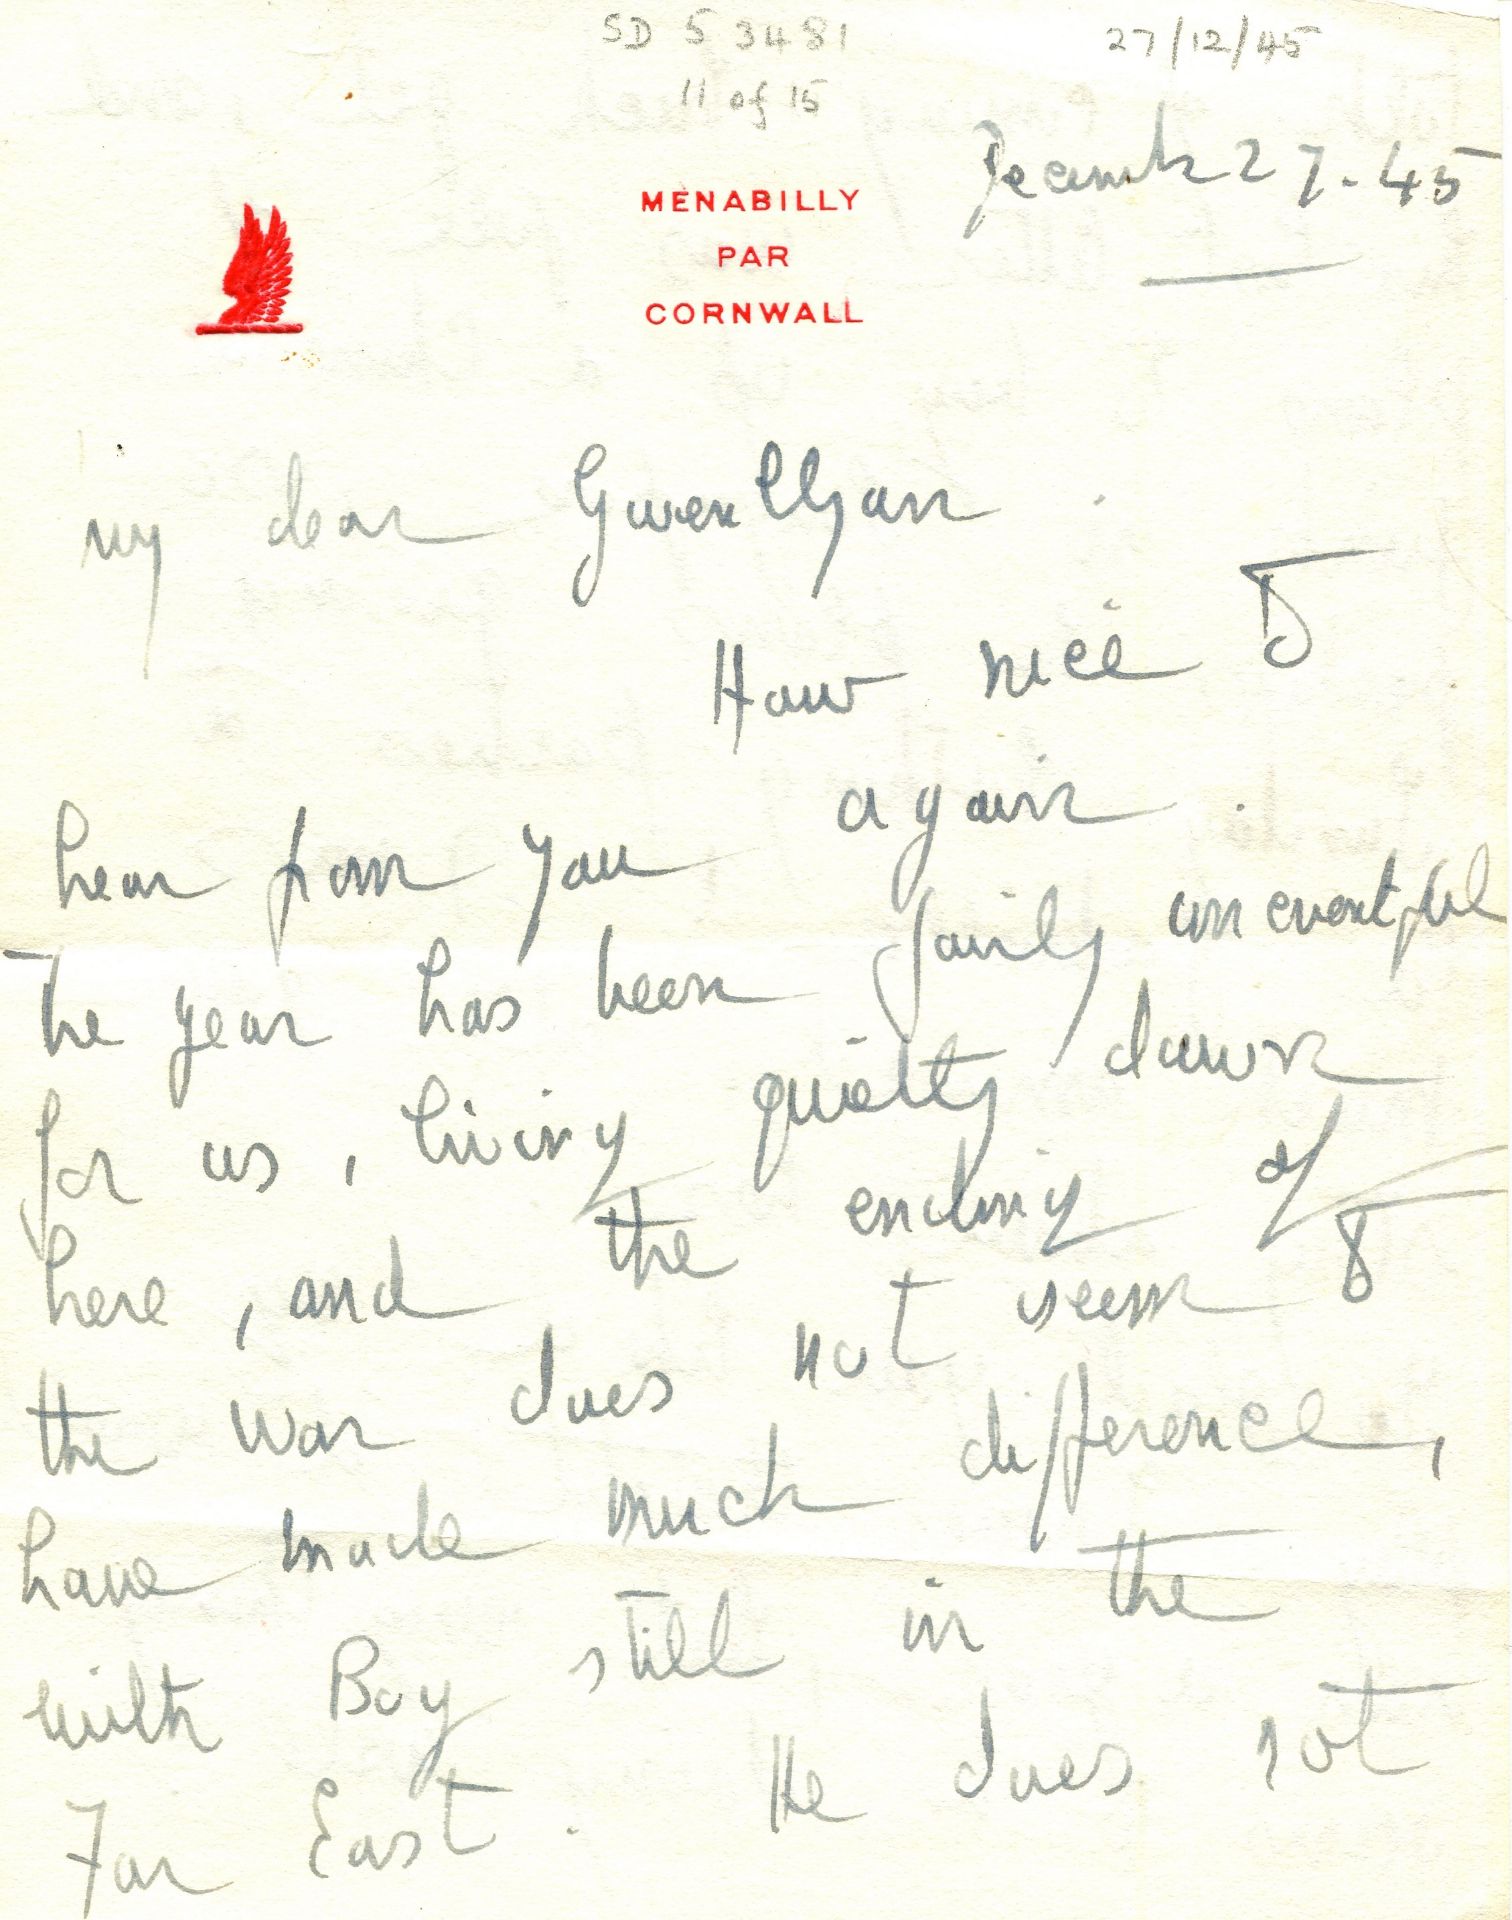 SD 5 3481
11 of 15
27/12/45
December 27. 45
MENABILLY
PAR
CORNWALL
My dear Gwenllyan.
How nice to
hear from you again.
The year has been fairly uneventful
for us, living quietly down
here, and the ending of
the war does not seem to
have made much difference,
with Boy still in the
Far East. He does not